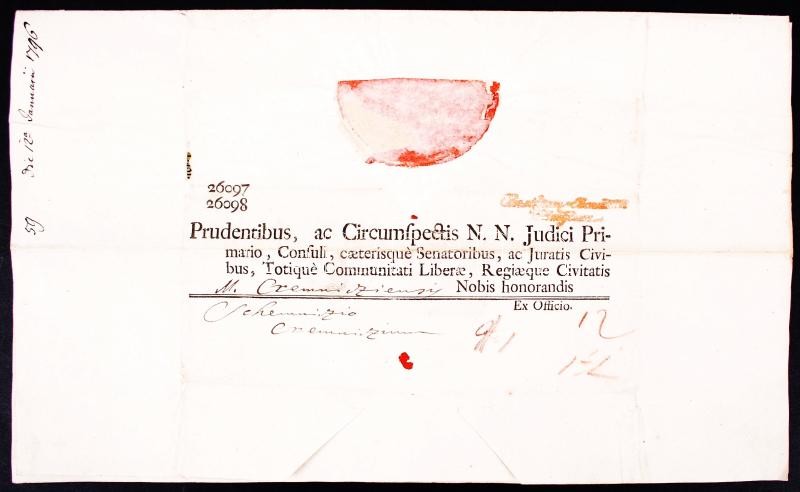 59 Die 12a Januarii 1796
26097
26098
Prudentibus, ac Circumſpectis N. N. Judici Pri-
mario, Conſuli, cæterisquè Senatoribus, ac Juratis Civi-
bus, Totiquè Communitati Liberæ, Regiæque Civitatis
M. Cremnidziensis Nobis honorandis
Ex Officio.
Schemnizio
Cremnidzium
12